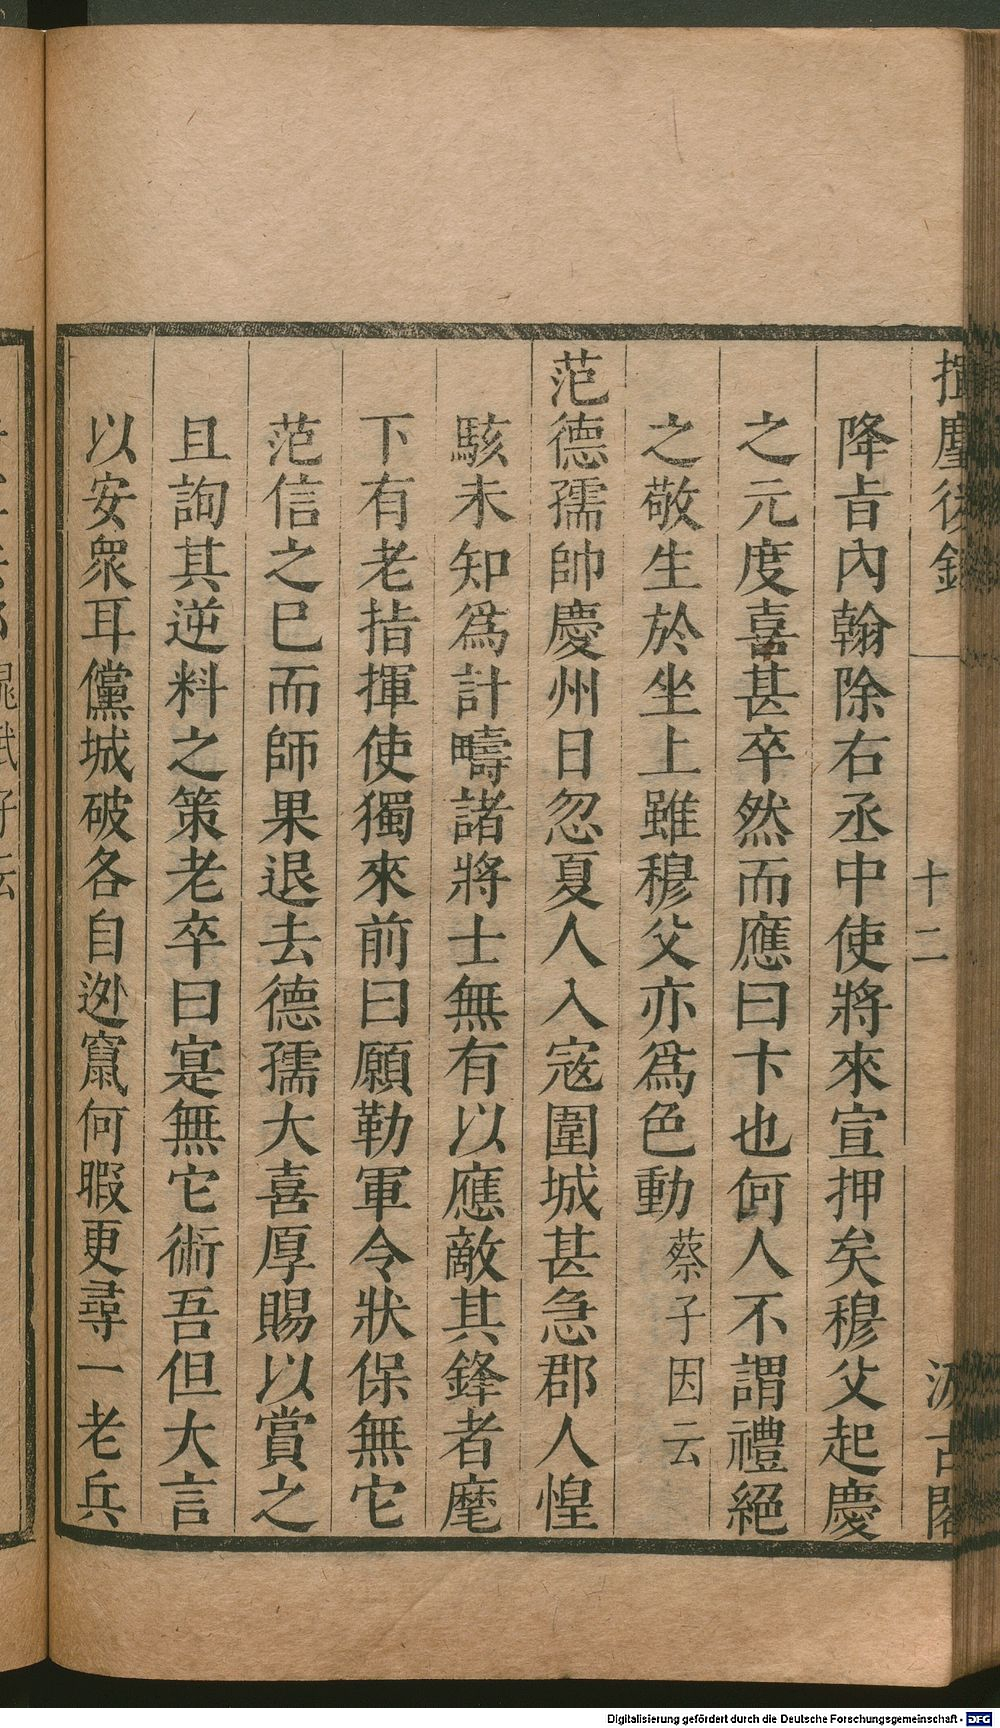 揮麈後錄
十二
汲古閣
降㫖內翰除右丞中使將來宣押矣穆父起慶
之元度喜甚卒然而應曰卞也何人不謂禮絕
之敬生於坐上雖穆父亦爲色動蔡子因云
范德孺帥慶州日忽夏人入寇圍城甚急郡人惶
駭未知爲計疇諸將士無有以應敵其鋒者麾
下有老指揮使獨來前曰願勒軍令狀保無它
范信之巳而師果退去德孺大喜厚賜以賞之
且詢其逆料之策老卒曰寔無它術吾但大言
以安衆耳儻城破各自迯竄何暇更尋一老兵
Digitalisierung gefördert durch die Deutsche Forschungsgemeinschaft - DFG